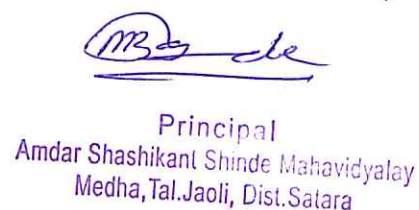 Principal
Amdar Shashikant Shinde Mahavidyalay
Medha, Tal.Jaoli, Dist.Satara